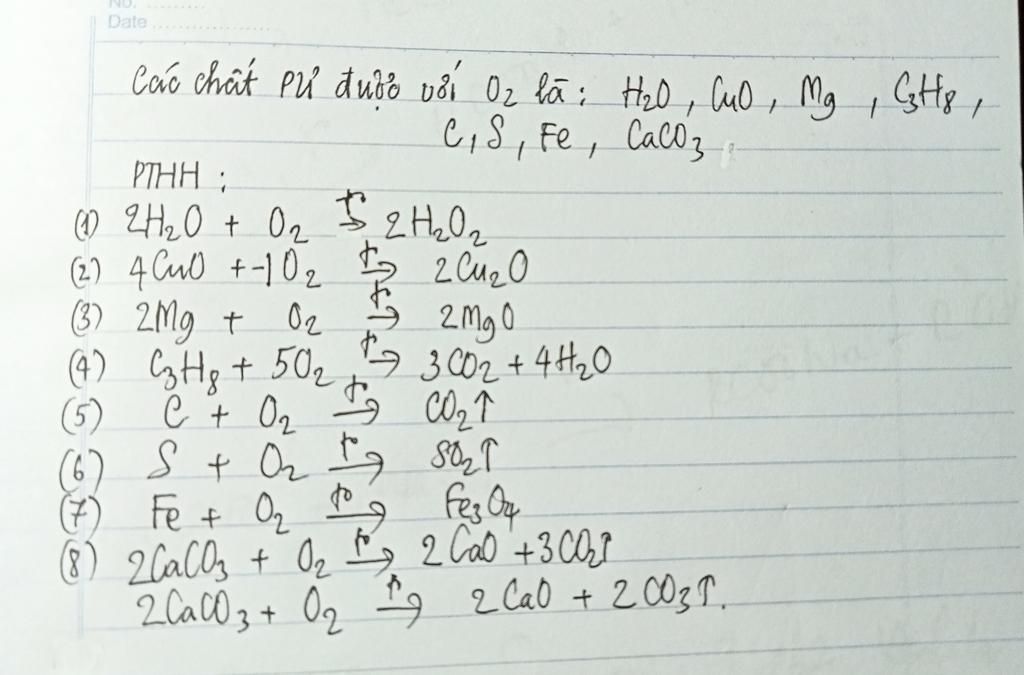 No. .........
Date ..................
Các chất PƯ được với O₂ là : H₂O , CuO , Mg , C₃H₈ ,
C, S , Fe , CaCO₃
PTHH :
(1) 2H₂O + O₂ →(t°) 2H₂O₂
(2) 4CuO + -1O₂ →(t°) 2Cu₂O
(3) 2Mg + O₂ →(t°) 2MgO
(4) C₃H₈ + 5O₂ →(t°) 3CO₂ + 4H₂O
(5) C + O₂ →(t°) CO₂↑
(6) S + O₂ →(t°) SO₂↑
(7) Fe + O₂ →(t°) Fe₃O₄
(8) 2CaCO₃ + O₂ →(t°) 2CaO + 3CO₂↑
2CaCO₃ + O₂ →(t°) 2CaO + 2CO₃↑.